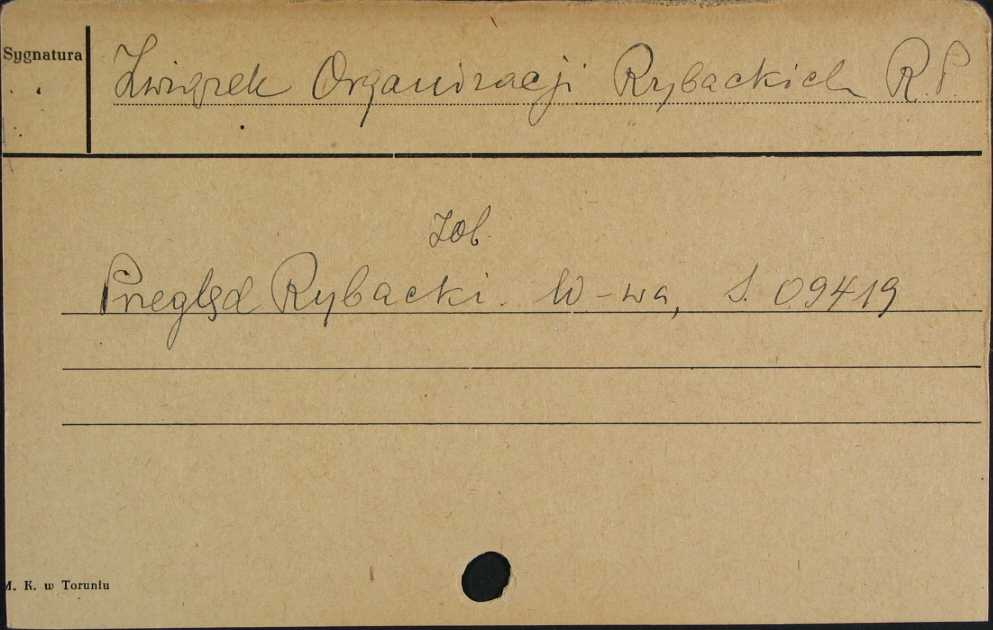 Sygnatura
Związek Organizacji Rybackich R.P.
Zob.
Przegląd Rybacki. W-wa, S. 09419
M. K. w Toruniu